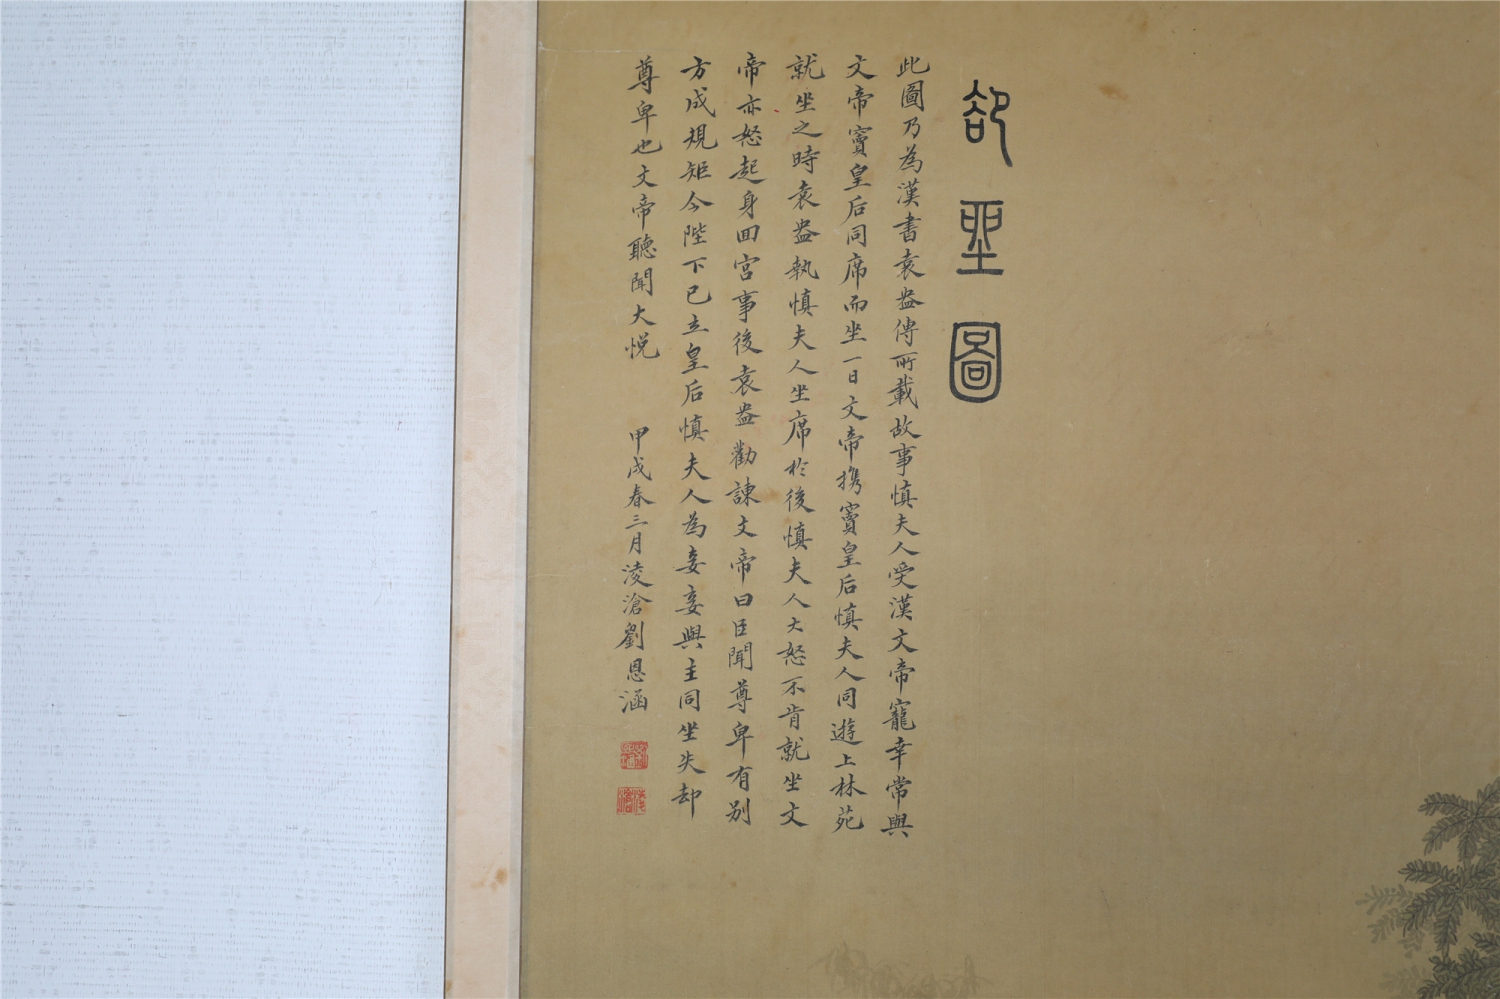 却坐圖
此圖乃為漢書袁盎傳所載故事慎夫人受漢文帝寵幸常與
文帝竇皇后同席而坐一日文帝攜竇皇后慎夫人同遊上林苑
就坐之時袁盎執慎夫人坐席於後慎夫人大怒不肯就坐文
帝亦怒起身回宮事後袁盎勸諫文帝曰臣聞尊卑有別
方成規矩今陛下已立皇后慎夫人為妾妾與主同坐失却
尊卑也文帝聽聞大悅
甲戌春三月淩滄劉恩涵